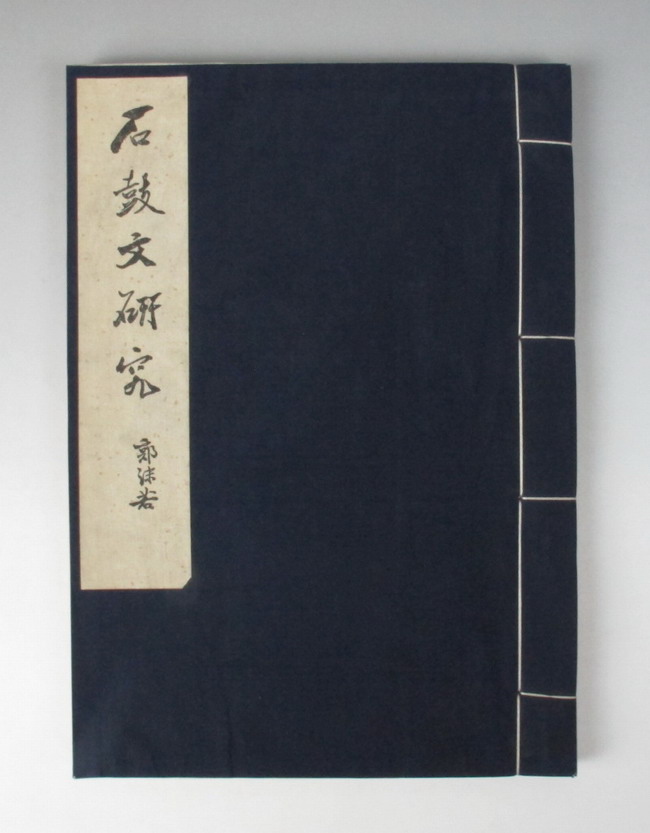 石鼓文研究
郭沫若